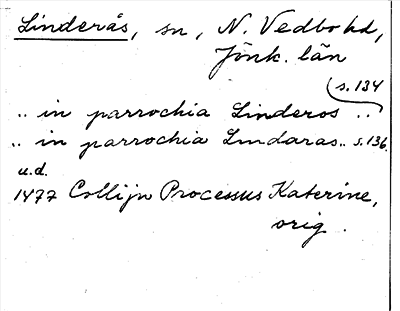 Linderås, sn, N. Vedbo hd,
Jönk. län
s. 134
.. in parrochia Linderos ..
.. in parrochia Lindaras.. s. 136.
u.d.
1477 Collijn Processus Katerine,
orig.